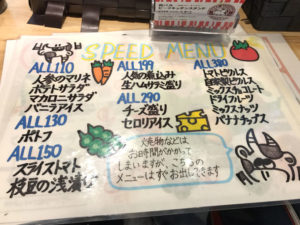 SPEED MENU
ALL110
人参のマリネ
ポテトサラダ
マカロニサラダ
バニラアイス
ALL130
ポトフ
ALL150
スライストマト
枝豆の浅漬け
ALL199
人気の煮込み
生ハムサラミ盛り
ALL290
チーズ盛り
セロリアイス
ALL380
トマトピクルス
自家製ピクルス
ミックスチョコレート
ドライフルーツ
ミックスナッツ
バナナチップス
焼物などは
お時間がかかって
しまいますが、こちらの
メニューはすぐお出しできます